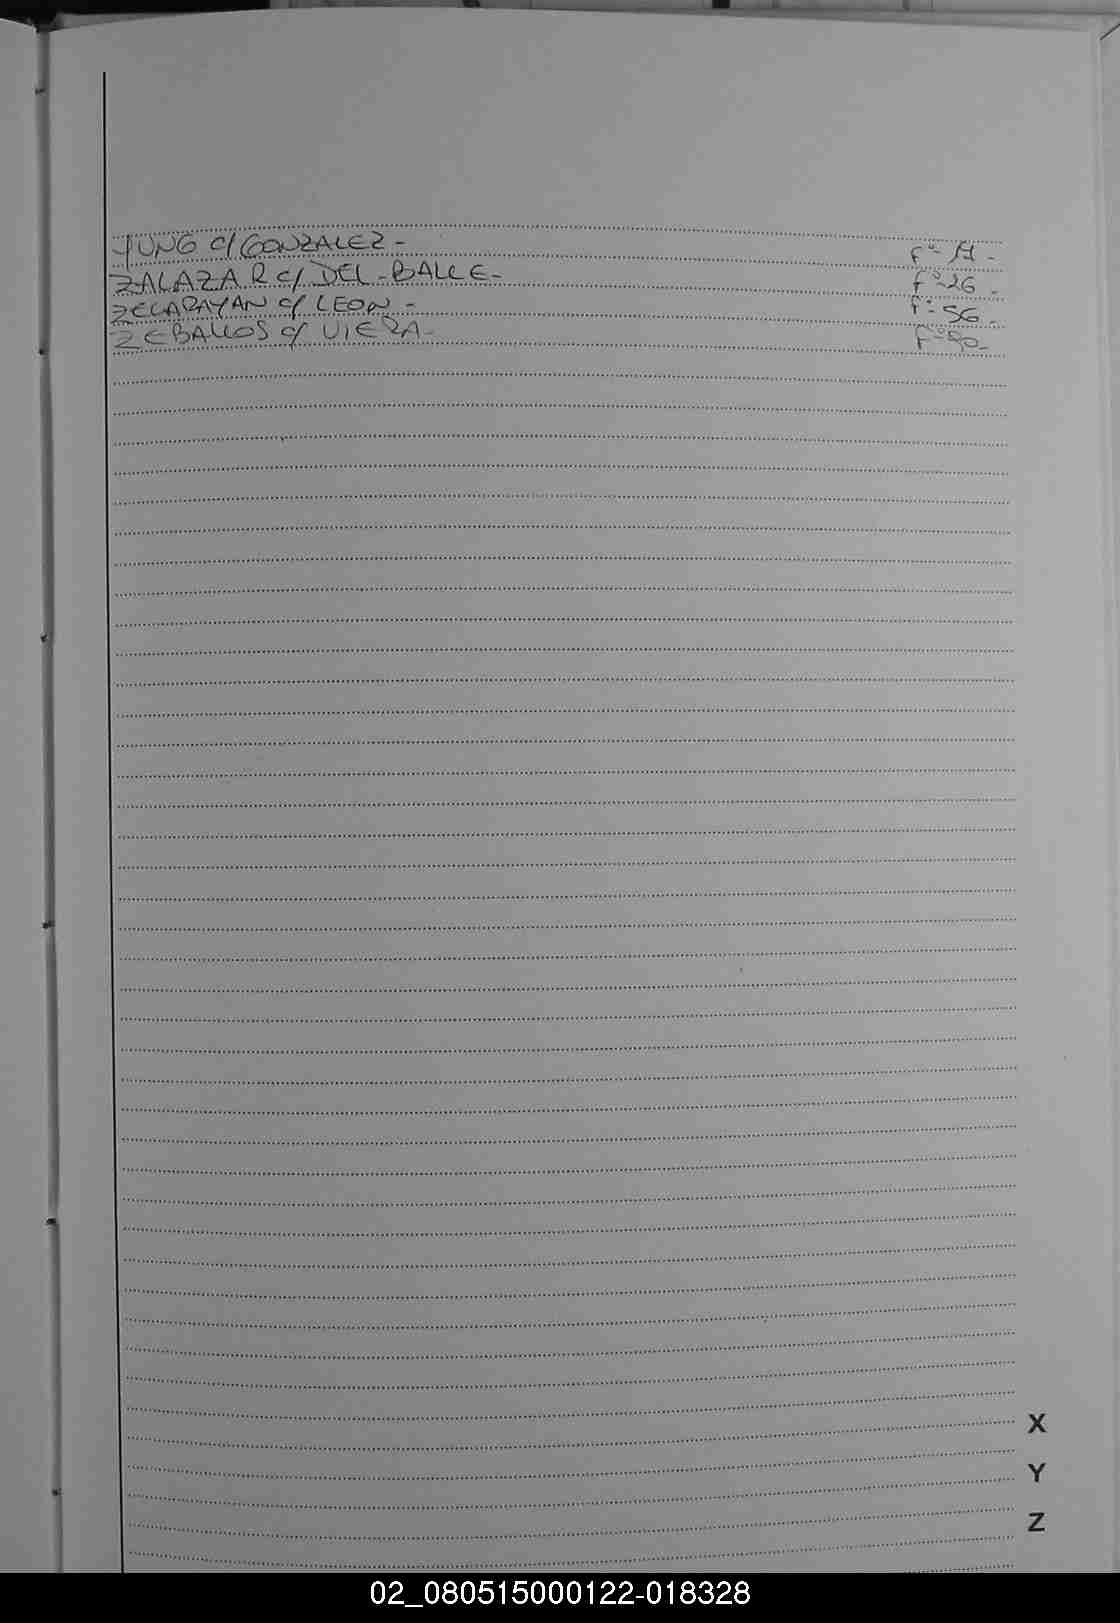 YUNG c/ GONZALEZ -
ZALAZAR c/ DEL-BALLE - fº 26 -
ZELARAYAN c/ LEON - fº 56 -
ZEBALLOS c/ VIERA - fº 90 -
X
Y
Z
02_080515000122-018328